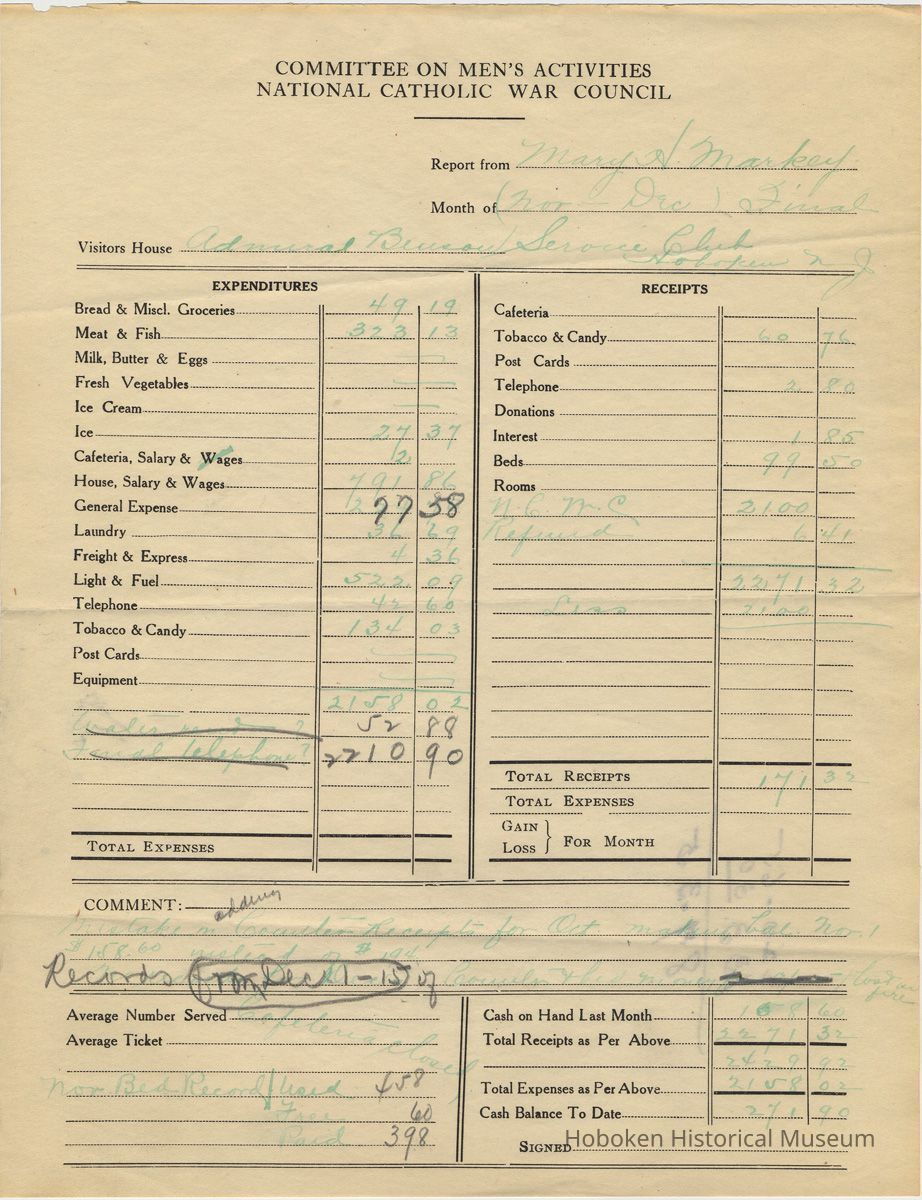 COMMITTEE ON MEN'S ACTIVITIES
NATIONAL CATHOLIC WAR COUNCIL
Report from Mary A. Markey
Month of (Nov - Dec) Final
Visitors House Admiral Benson Service Club
Hoboken N J
EXPENDITURES
Bread & Miscl. Groceries 49 19
Meat & Fish 323 13
Milk, Butter & Eggs
Fresh Vegetables
Ice Cream
Ice 27 37
Cafeteria, Salary & Wages 12
House, Salary & Wages 791 86
General Expense 77 58
Laundry 36 69
Freight & Express 4 36
Light & Fuel 522 09
Telephone 42 60
Tobacco & Candy 134 03
Post Cards
Equipment
2158 02
52 88
Final telephone? 2210 90
TOTAL EXPENSES
RECEIPTS
Cafeteria
Tobacco & Candy 60 76
Post Cards
Telephone 2 80
Donations
Interest 1 85
Beds 99 50
Rooms
N. C. W. C 2100
Refund 6 41
2271 32
Less 2100
TOTAL RECEIPTS 171 32
TOTAL EXPENSES
GAIN
LOSS } FOR MONTH
COMMENT:
adding
Mistake in Counter Receipts for Oct making bal. Nov. 1
$158.60 instead of $194
Records from Dec 1-15 of Counter & lost in fire
Average Number Served Cafeteria closed
Average Ticket
Nov Bed Record Used 458
Free 60
Paid 398
Cash on Hand Last Month 158 60
Total Receipts as Per Above 2271 32
2429 92
Total Expenses as Per Above 2158 02
Cash Balance To Date 271 90
SIGNED
Hoboken Historical Museum